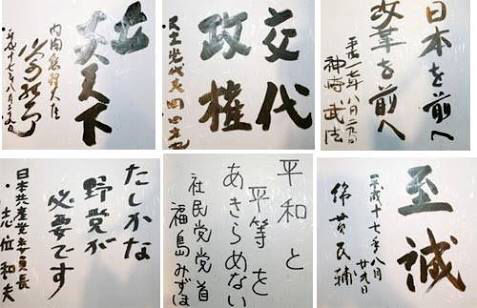 天下
内閣総理大臣
平成十七年八月二十九日
小泉純一郎
交代
政権
民主党代表 岡田克也
日本を前へ
改革を前へ
平成十七年八月二十九日
神崎武法
たしかな
野党が
必要です
日本共産党委員長
志位和夫
平和と
平等を
あきらめない
社民党党首
福島みずほ
至誠
平成十七年八月
廿九日
綿貫民輔